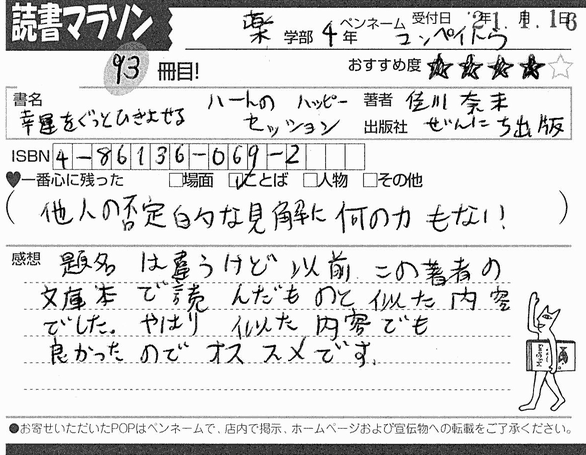 読書マラソン
薬 学部 4 年 ペンネーム コンペイトウ 受付日 '21.1.18
93 冊目! おすすめ度 ★★★★☆
書名 幸運をぐっとひきよせる ハートの ハッピー セッション
著者 佳川 奈未
出版社 ぜんにち出版
ISBN 4-86136-069-2
♥一番心に残った □場面 □ことば □人物 □その他
( 他人の否定的な見解に何の力もない! )
感想 題名は違うけど以前この著者の
文庫本で読んだものと似た内容
でした。やはり 似た内容でも
良かったのでオススメです。
●お寄せいただいたPOPはペンネームで、店内で掲示、ホームページおよび宣伝物への転載をご了承ください。